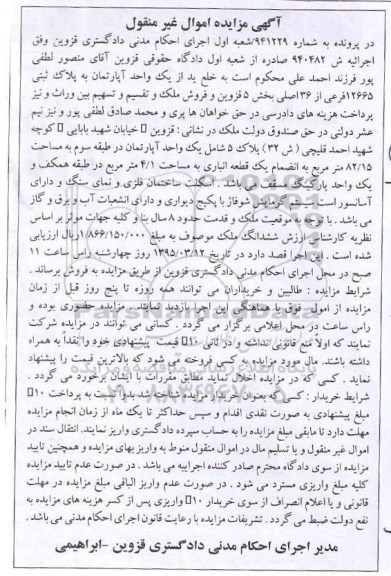 آگهی مزایده اموال غیر منقول
در پرونده به شماره ۹۴۱۲۲۹/شعبه اول اجرای احکام مدنی دادگستری قزوین وفق
اجرائیه ش ۹۴۰۴۸۲ صادره از شعبه اول دادگاه حقوقی قزوین آقای منصور لطفی
پور فرزند احمد علی محکوم است به خلع ید از یک واحد آپارتمان به پلاک ثبتی
۱۲۶۶۵فرعی از ۳۶اصلی بخش ۵ قزوین و فروش ملک و تقسیم و تسهیم بین وراث و نیز
پرداخت هزینه های دادرسی در حق خواهان ها پری و محمد صادق لطفی پور و نیز نیم
عشر دولتی در حق صندوق دولت ملک در نشانی : قزوین خیابان شهید بابایی کوچه
شهید احمد قلیچی ( ش ۳۲ ) پلاک ۵ شامل یک واحد آپارتمان در طبقه سوم به مساحت
۸۲/۱۵ متر مربع به انضمام یک قطعه انباری به مساحت ۴/۱ متر مربع در طبقه همکف و
یک واحد پارکینگ مسقف می باشد . اسکلت ساختمان فلزی و نمای سنگ و دارای
آسانسور است سیستم گرمایش شوفاژ با پکیج دیواری و دارای انشعابات آب و برق و گاز
می باشد . با توجه به موقعیت ملک و قدمت حدود ۸ سال بنا و کلیه جهات موثر بر اساس
نظریه کارشناس ارزش ششدانگ ملک موصوف به مبلغ ۱/۸۶۶/۱۵۰/۰۰۰ریال ارزیابی
شده است . این اجرا قصد دارد در تاریخ ۱۳۹۵/۰۳/۱۲ روز چهارشنبه راس ساعت ۱۱
صبح در محل اجرای احکام مدنی دادگستری قزوین از طریق مزایده به فروش برساند .
شرایط مزایده : طالبین و خریداران می توانند همه روزه تا پنج روز قبل از زمان
مزایده از اموال فوق با هماهنگی این اجرا بازدید نمایند . مزایده حضوری بوده و
راس ساعت در محل اعلامی برگزار می گردد . کسانی می توانند در مزایده شرکت
نمایند که اولاً منع قانونی نداشته و در ثانی ۱۰ قیمت پیشنهادی خود را نقدا به همراه
داشته باشند. مال مورد مزایده به کسی فروخته می شود که بالاترین قیمت را پیشنهاد
نماید . کسی که در مزایده اخلال نماید مطابق مقررات با ایشان برخورد می گردد .
شرایط خریدار : کسی که بعنوان خریدار مزایده شناخته شد بدوا نسبت به پرداخت ۱۰
مبلغ پیشنهادی به صورت نقدی اقدام و سپس حداکثر تا یک ماه از زمان انجام مزایده
مهلت دارد تا مابقی مبلغ مزایده را به حساب سپرده دادگستری واریز نمایند. انتقال سند در
اموال غیر منقول و یا تسلیم مال در اموال منقول منوط به واریز بهای مزایده و همچنین تایید
مزایده از سوی دادگاه محترم صادر کننده اجراییه می باشد . در صورت عدم تایید مزایده
کلیه مبالغ واریزی مسترد می شود . در صورت عدم واریز الباقی مبلغ مزایده در مهلت
قانونی و یا اعلام انصراف از سوی خریدار ۱۰ واریزی پس از کسر هزینه های مزایده به
نفع دولت ضبط می گردد . تشریفات مزایده با رعایت قانون اجرای احکام مدنی می باشد .
مدیر اجرای احکام مدنی دادگستری قزوین -ابراهیمی